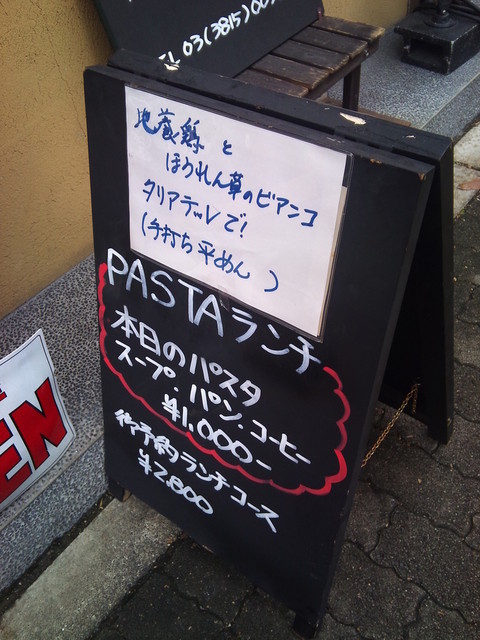 TEL 03(3815)00
地養鶏と
ほうれん草のビアンコ
タリアテッレで!
(手打ち平めん)
PASTAランチ
本日のパスタ
スープ・パン・コーヒー
¥1,000-
御予約ランチコース
¥2800
EN